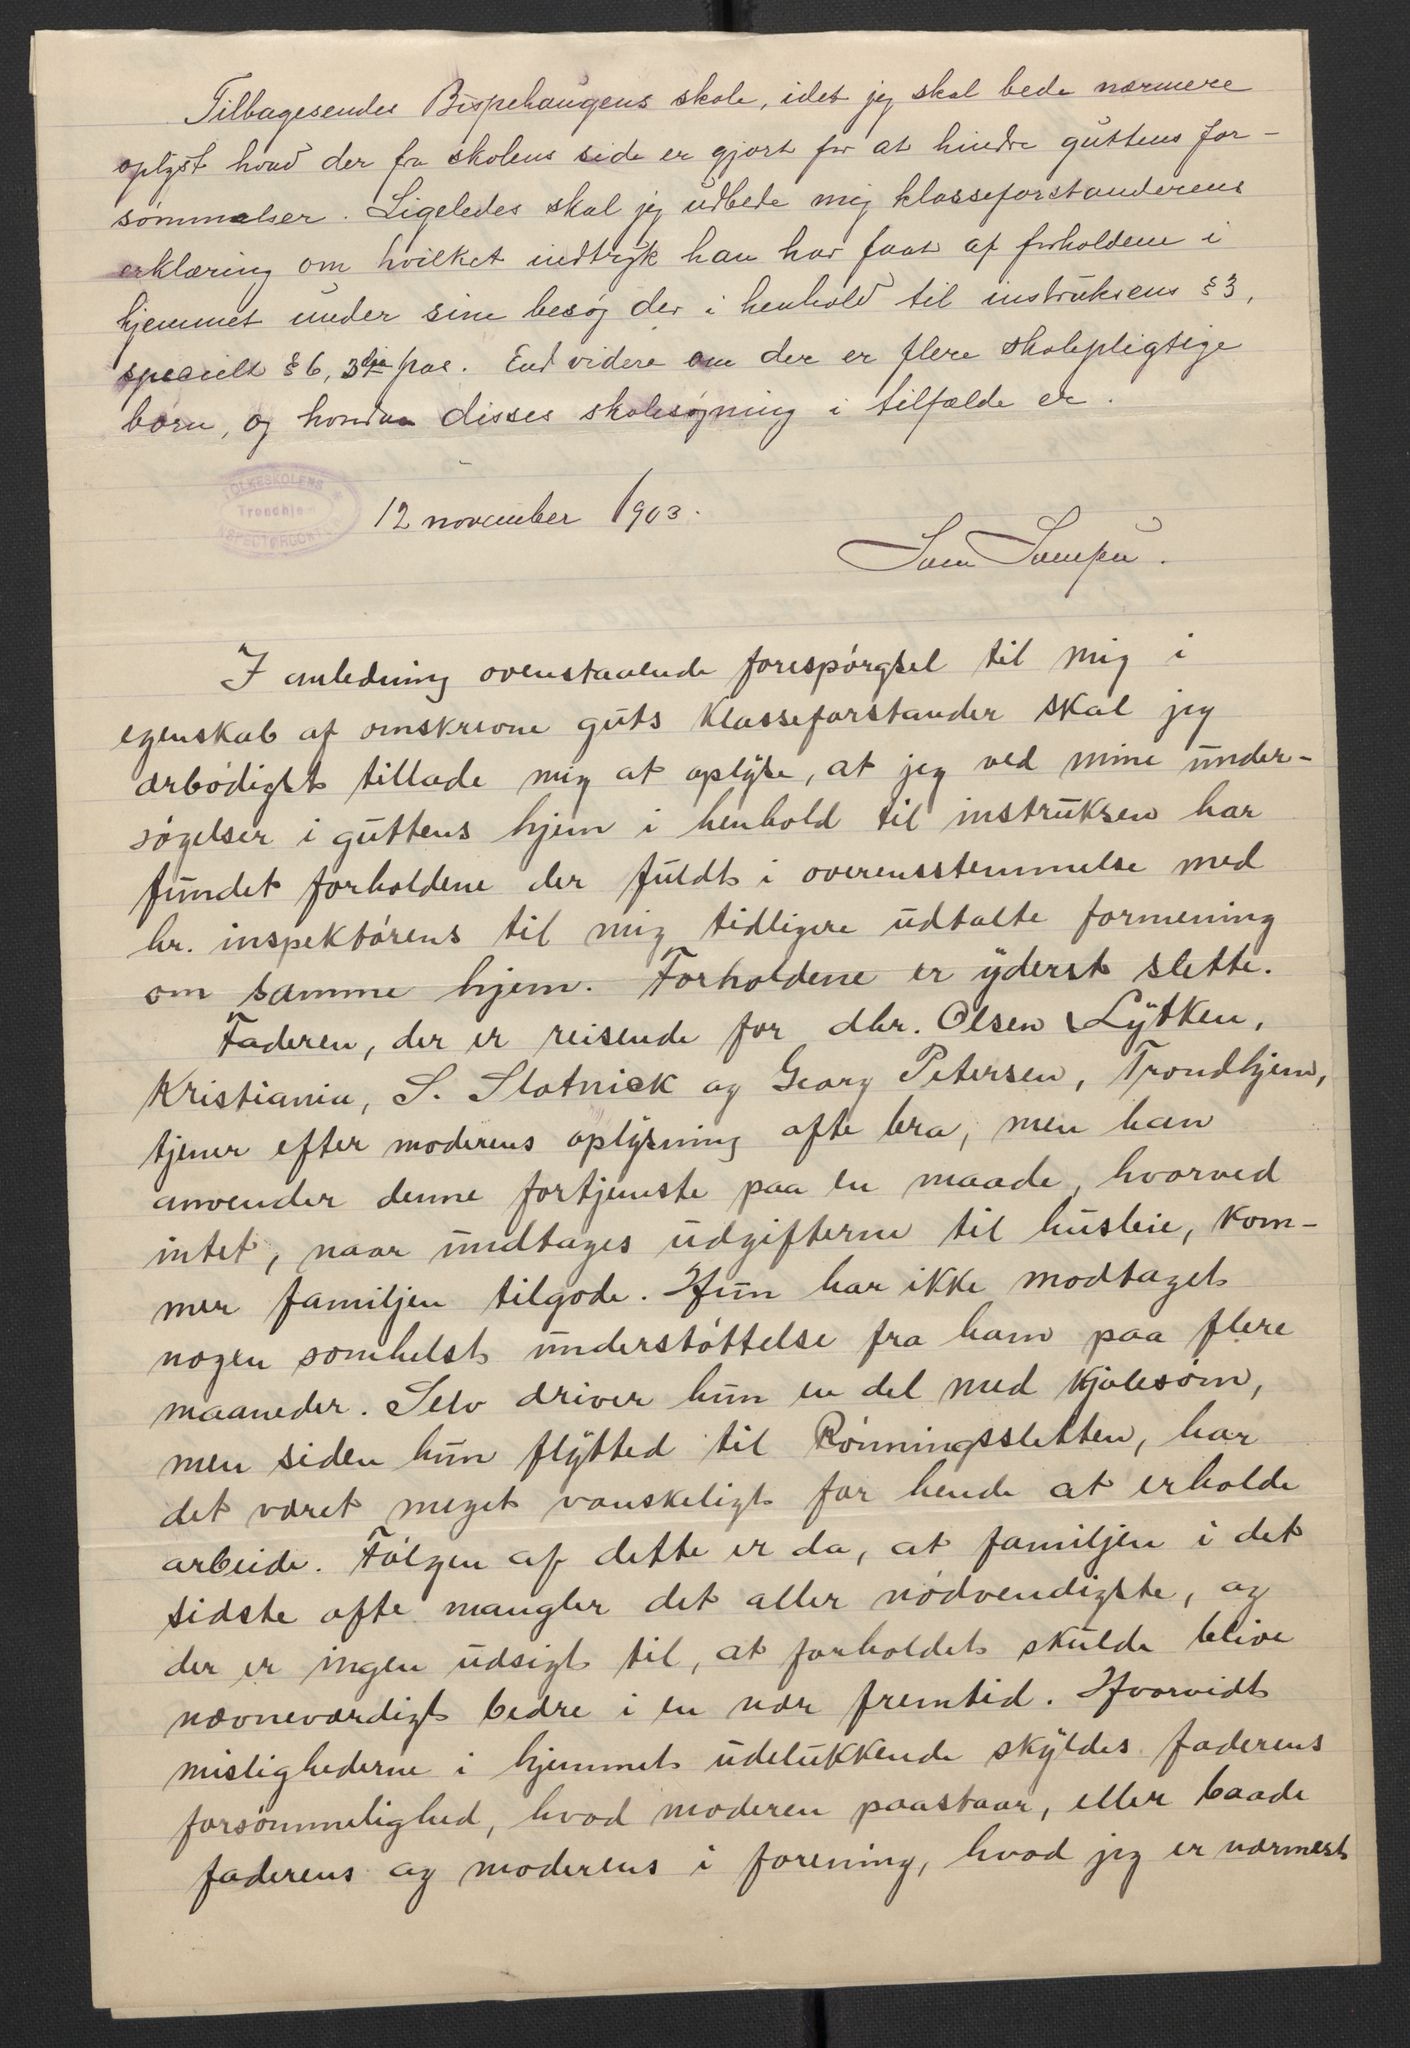 Tilbagesendes Bispehaugens skole, idet jeg skal bede nærmere
oplyst hvad der fra skolens side er gjort for at hindre guttens for-
sømmelser. Ligeledes skal jeg udbede mig klasseforstanderens
erklæring om hvilket indtryk han har faat af forholdene i
hjemmet under sine besøg der i henhold til instruksens § 3,
specielt § 6, 3die pas. End videre om der er flere skolepligtige
børn, og hvordan disses skolesøgning i tilfælde er.
FOLKESKOLENS
Trondhjem
INSPECTØRCONTOR
12 november 1903.
I anledning ovenstaaende forespørgsel til mig i
egenskab af omskrevne guts klasseforstander skal jeg
ærbødigst tillade mig at oplyse, at jeg ved mine under-
søgelser i guttens hjem i henhold til instruksen har
fundet forholdene der fuldt i overensstemmelse med
hr. inspektørens til mig tidligere udtalte formening
om samme hjem. Forholdene er yderst slette.
Faderen, der er reisende for dhr. Olsen & Lytken,
Kristiania, S. Slotnick og Georg Petersen, Trondhjem,
tjener efter moderens oplysning ofte bra, men han
anvender denne fortjeneste paa en maade, hvorved
intet, naar undtages udgifterne til husleie, kom-
mer familjen tilgode. Hun har ikke modtaget
nogen somhelst understøttelse fra ham paa flere
maaneder. Selv driver hun en del med kjolesøm,
men siden hun flytted til Rønningssletten, har
det været meget vanskeligt for hende at erholde
arbeide. Følgen af dette er da, at familjen i det
sidste ofte mangler det aller nødvendigste, og
der er ingen udsigt til, at forholdet skulde blive
nævneværdigt bedre i en nær fremtid. Hvorvidt
mislighederne i hjemmet udelukkende skyldes faderens
forsømmelighed, hvad moderen paastaar, eller baade
faderens og moderens i forening, hvad jeg er nærmest